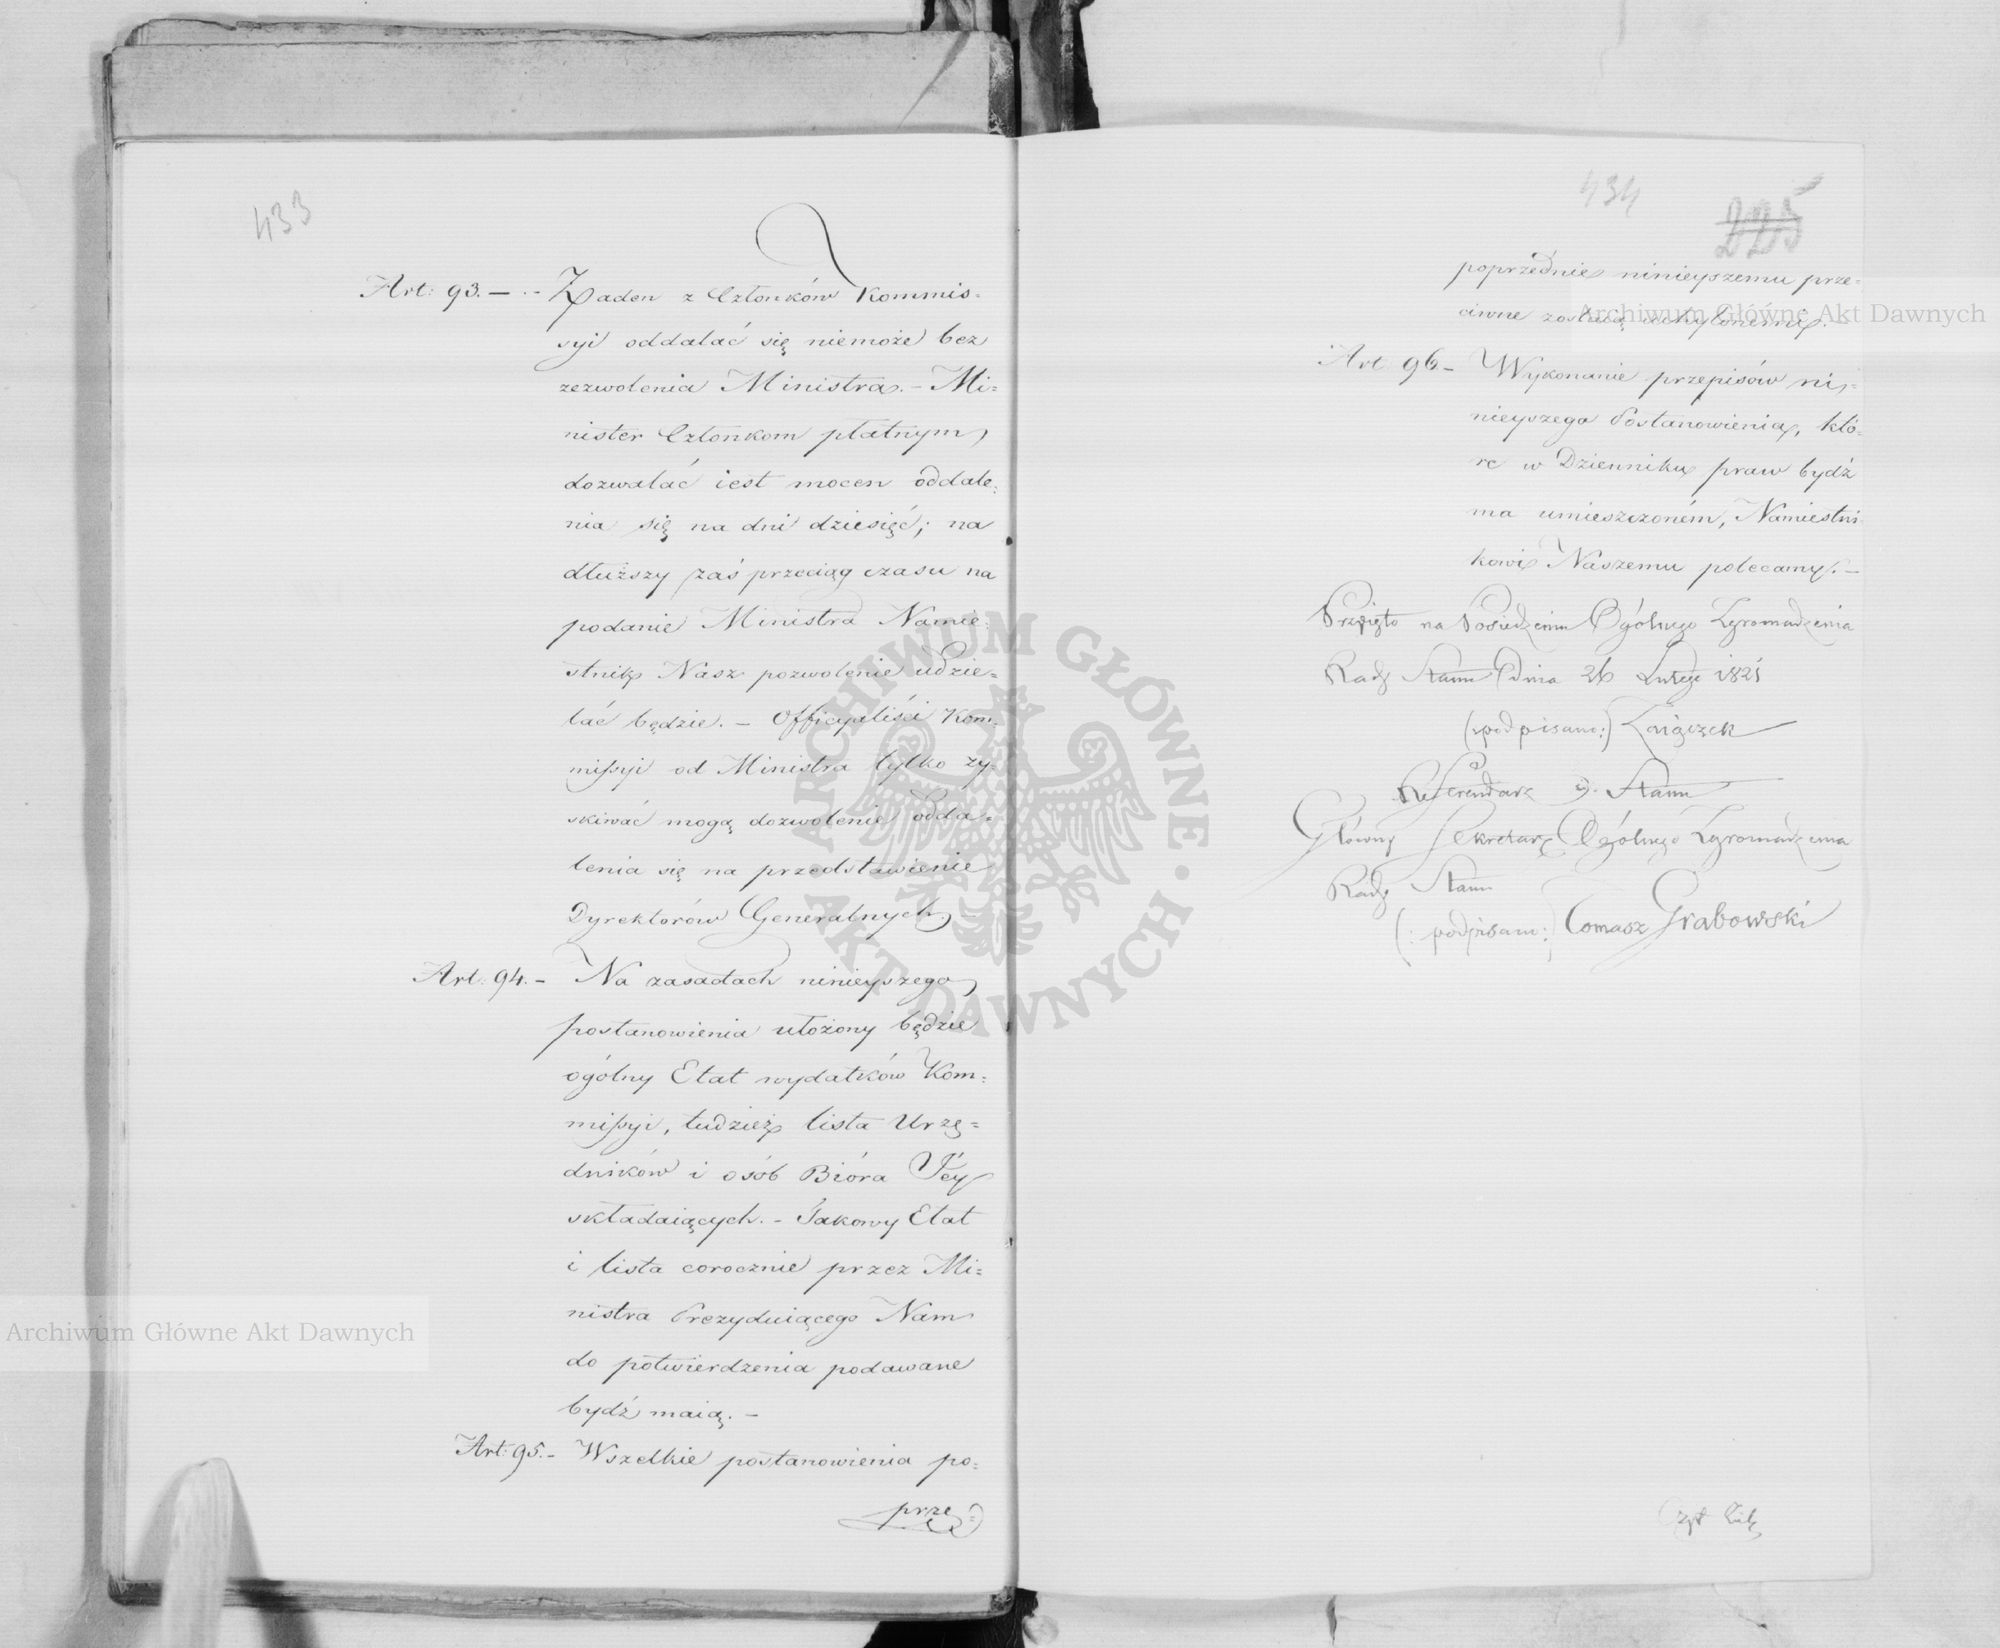 433
Art: 93. — Żaden z Członków Kommis=
syi oddalać się niemoże bez
zezwolenia Ministra. — Mi=
nister Członkom płatnym
dozwalać iest mocen oddale=
nia się na dni dziesięć; na
dłuższy zaś przeciąg czasu na
podanie Ministra Namie=
stnik Nasz pozwolenie udzie=
lać będzie. — Officyaliści Kom=
missyi od Ministra tylko zy=
skiwać mogą dozwolenie odda=
lenia się na przedstawienie
Dyrektorów Generalnych. —
Art: 94. — Na zasadach ninieyszego
postanowienia ułożony będzie
ogólny Etat wydatków Kom=
missyi, tudzież lista Urzę=
dników i osób Bióra Téy
składaiących. — Takowy Etat
i lista corocznie przez Mi=
nistra Prezyduiącego Nam
do potwierdzenia podawane
bydź maią. —
Art: 95. — Wszelkie postanowienia po=
prze=
434
225
poprzednie ninieyszemu prze=
ciwne zostaią uchylonemi. —
Art 96 — Wykonanie przepisów ni=
nieyszego Postanowienia, któ=
re w Dzienniku praw bydź
ma umieszczoném, Namiestni
kowi Naszemu polecamy. —
Przyięto na Posiedzeniu Ogólnego Zgromadzenia
Rady Stanu Dnia 26 Lutego 1821
(podpisano:) Zaiączek
Referendarz Stanu
Główny Sekretarz Ogólnego Zgromadzenia
Rady Stanu
(: podpisano:) Tomasz Grabowski
Archiwum Główne Akt Dawnych
Archiwum Główne Akt Dawnych
ARCHIWUM GŁÓWNE · AKT DAWNYCH ·